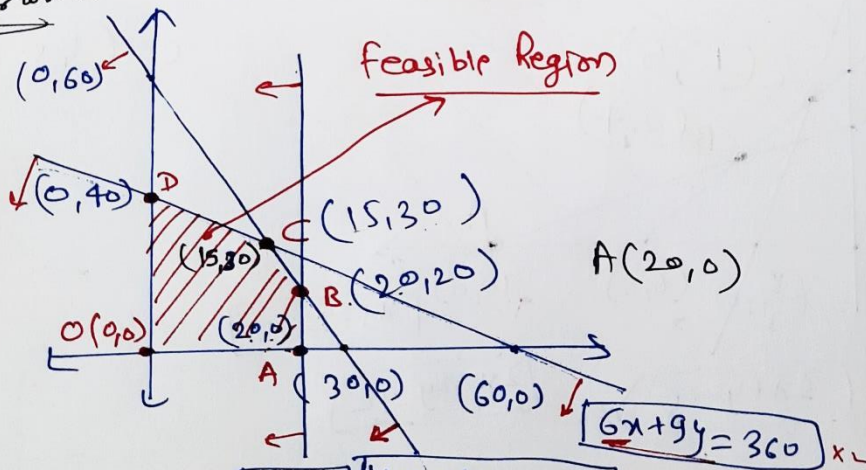 Feasible Region
(0,60)
D
(0,40)
C (15,30)
(15,30)
B. (20,20)
A(20,0)
O(0,0)
(20,0)
A
(30,0)
(60,0)
6x+9y=360